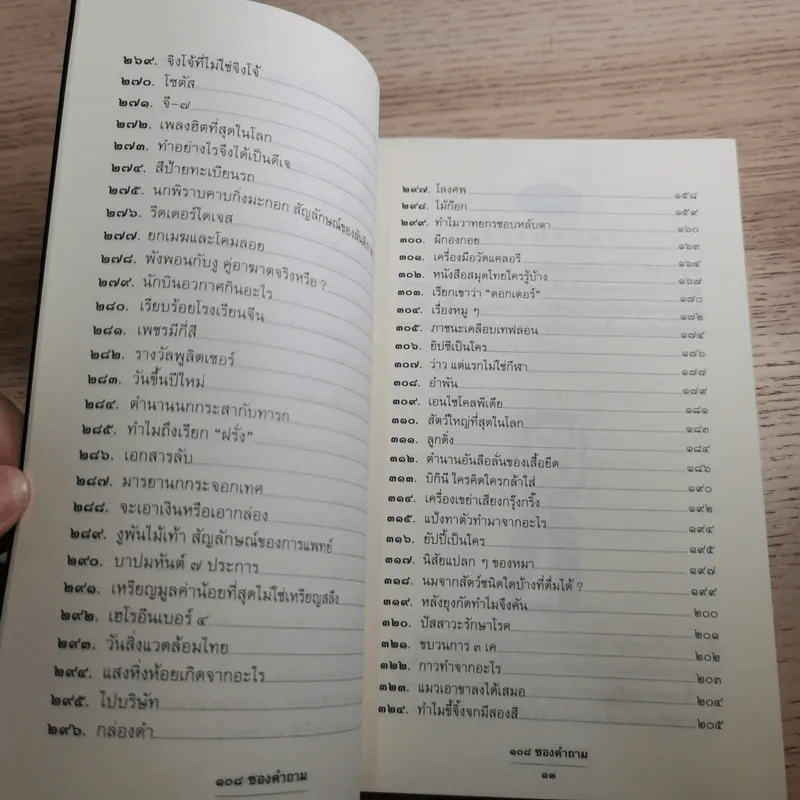 ๒๖๙. จิงโจ้ที่ไม่ใช่จิงโจ้
๒๗๐. โซตัส
๒๗๑. จี-๗
๒๗๒. เพลงฮิตที่สุดในโลก
๒๗๓. ทำอย่างไรจึงได้เป็นดีเจ
๒๗๔. สีป้ายทะเบียนรถ
๒๗๕. นกพิราบคาบกิ่งมะกอก สัญลักษณ์ของสันติภาพ
๒๗๖. รีดเดอร์ไดเจส
๒๗๗. ยกเมฆและโคมลอย
๒๗๘. พังพอนกับงู คู่อาฆาตจริงหรือ ?
๒๗๙. นักบินอวกาศกินอะไร
๒๘๐. เรียบร้อยโรงเรียนจีน
๒๘๑. เพชรมีกี่สี
๒๘๒. รางวัลพูลิตเซอร์
๒๘๓. วันขึ้นปีใหม่
๒๘๔. ตำนานนกกระสากับทารก
๒๘๕. ทำไมถึงเรียก “ฝรั่ง”
๒๘๖. เอกสารลับ
๒๘๗. มารยานกกระจอกเทศ
๒๘๘. จะเอาเงินหรือเอากล่อง
๒๘๙. งูพันไม้เท้า สัญลักษณ์ของการแพทย์
๒๙๐. บาปมหันต์ ๗ ประการ
๒๙๑. เหรียญมูลค่าน้อยที่สุดไม่ใช่เหรียญสลึง
๒๙๒. เฮโรอีนเบอร์ ๔
๒๙๓. วันสิ่งแวดล้อมไทย
๒๙๔. แสงหิ่งห้อยเกิดจากอะไร
๒๙๕. ไปบริษัท
๒๙๖. กล่องดำ
๑๐๘ ซองคำถาม
๒๙๗. โลงศพ ๑๕๘
๒๙๘. ไม้ก๊อก ๑๕๙
๒๙๙. ทำไมวาทยกรชอบหลับตา ๑๖๐
๓๐๐. ผีกองกอย ๑๖๓
๓๐๑. เครื่องมือวัดแคลอรี ๑๖๔
๓๐๒. หนังสือสมุดไทยใครรู้บ้าง ๑๖๗
๓๐๓. เรียกเขาว่า “ดอกเตอร์” ๑๗๐
๓๐๔. เรื่องหมู ๆ ๑๗๒
๓๐๕. ภาชนะเคลือบเทฟลอน ๑๗๔
๓๐๖. ยิปซีเป็นใคร ๑๗๖
๓๐๗. ว่าว แต่แรกไม่ใช่กีฬา ๑๗๗
๓๐๘. อำพัน ๑๗๙
๓๐๙. เอนไซโคลพีเดีย ๑๘๑
๓๑๐. สัตว์ใหญ่ที่สุดในโลก ๑๘๓
๓๑๑. ลูกดิ่ง ๑๘๔
๓๑๒. ตำนานอันลือลั่นของเสื้อยืด ๑๘๖
๓๑๓. บิกินี ใครคิดใครกล้าใส่ ๑๙๐
๓๑๔. เครื่องเขย่าเสียงกรุ๊งกริ๊ง ๑๙๒
๓๑๕. แป้งทาตัวทำมาจากอะไร ๑๙๔
๓๑๖. ยัปปี้เป็นใคร ๑๙๕
๓๑๗. นิสัยแปลก ๆ ของหมา ๑๙๗
๓๑๘. นมจากสัตว์ชนิดใดบ้างที่ดื่มได้ ? ๑๙๙
๓๑๙. หลังยุงกัดทำไมจึงคัน ๒๐๐
๓๒๐. ปัสสาวะรักษาโรค ๒๐๑
๓๒๑. ขบวนการ ๓ เค ๒๐๒
๓๒๒. กาวทำจากอะไร ๒๐๓
๓๒๓. แมวเอาขาลงได้เสมอ ๒๐๔
๓๒๔. ทำไมขี้จิ้งจกมีสองสี ๒๐๕
๑๐๘ ซองคำถาม
๑๓